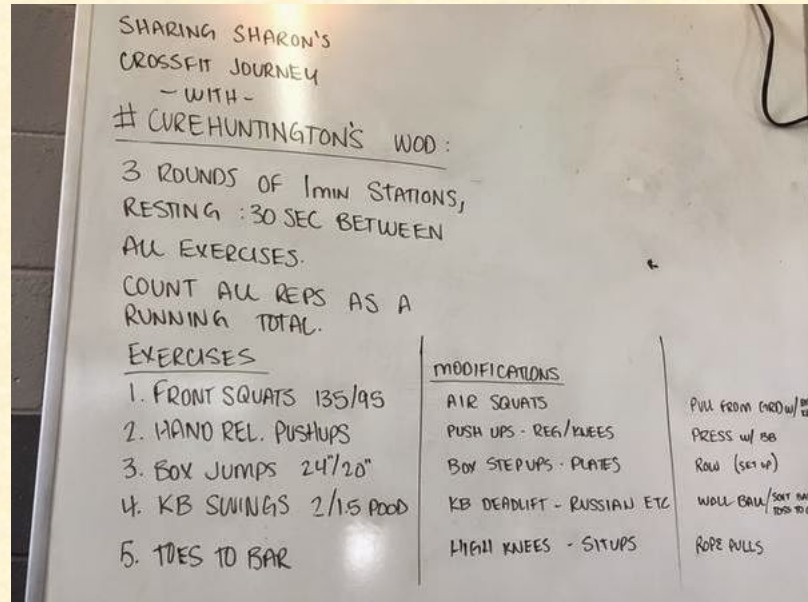 SHARING SHARON'S
CROSSFIT JOURNEY
- WITH -
# CUREHUNTINGTON'S WOD:
3 ROUNDS OF 1MIN STATIONS,
RESTING :30 SEC BETWEEN
ALL EXERCISES.
COUNT ALL REPS AS A
RUNNING TOTAL.
EXERCISES
1. FRONT SQUATS 135/95
2. HAND REL. PUSHUPS
3. BOX JUMPS 24"/20"
4. KB SWINGS 2/1.5 POOD
5. TOES TO BAR
MODIFICATIONS
AIR SQUATS
PUSH UPS - REG/KNEES
BOX STEPUPS - PLATES
KB DEADLIFT - RUSSIAN ETC
HIGH KNEES - SITUPS
PULL FROM GRD W/
PRESS W/ BB
ROW (SET UP)
WALL BALL/SOFT
TOSS TO
ROPE PULLS